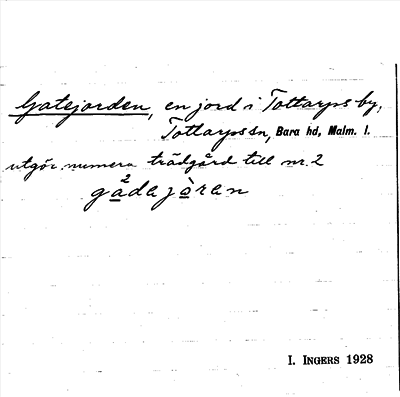 Gatejorden, en jord i Tottarps by,
Tottarps sn, Bara hd, Malm. l.
utgör numera trädgård till nr. 2
gå²dajòran
I. INGERS 1928